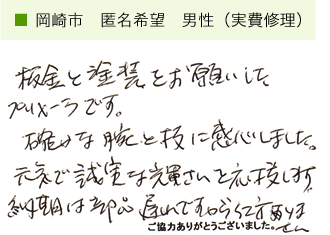 ■ 岡崎市　匿名希望　男性（実費修理）
板金と塗装をお願いした
プリメーラです。
確かな腕と技に感心しました。
元気で誠実な店員さんを応援します。
納期は部品遅れですから仕方ありま
せん
ご協力ありがとうございました。